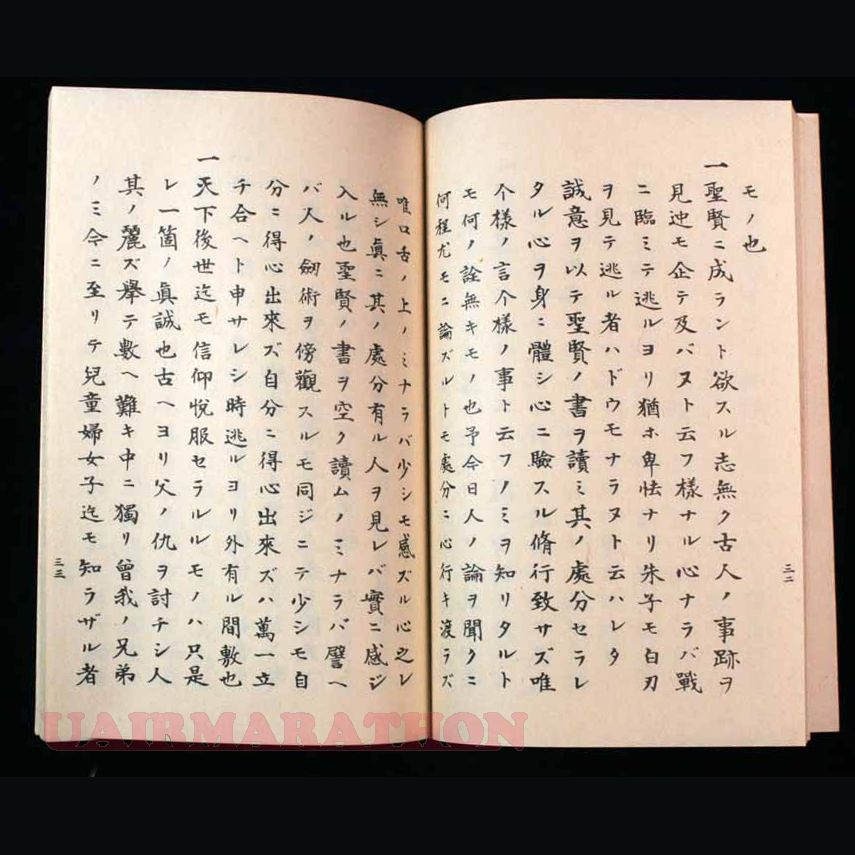 モノ也
一聖賢ニ成ラント欲スル志無ク古人ノ事跡ヲ
見迚モ企テ及バヌト云フ様ナル心ナラバ戰
ニ臨ミテ逃ルヨリ猶ホ卑怯ナリ朱子モ白刃
ヲ見テ逃ル者ハドウモナラヌト云ハレタ
誠意ヲ以テ聖賢ノ書ヲ讀ミ其ノ處分セラレ
タル心ヲ身ニ體シ心ニ驗スル脩行致サズ唯
个樣ノ言个樣ノ事ト云フノミヲ知リタルト
モ何ノ詮無キモノ也予今日人ノ論ヲ聞クニ
何程尤モニ論ズルトモ處分ニ心行キ渡ラズ
三二
唯口舌ノ上ノミナラバ少シモ感ズル心之レ
無シ眞ニ其ノ處分有ル人ヲ見レバ實ニ感ジ
入ル也聖賢ノ書ヲ空ク讀ムノミナラバ譬ヘ
バ人ノ劍術ヲ傍觀スルモ同ジニテ少シモ自
分ニ得心出來ズ自分ニ得心出來ズハ萬一立
チ合ヘト申サレシ時逃ルヨリ外有ル間敷也
一天下後世迄モ信仰悅服セラルルモノハ只是
レ一箇ノ眞誠也古ヘヨリ父ノ仇ヲ討チシ人
其ノ麗ズ擧テ數ヘ難キ中ニ獨リ曾我ノ兄弟
ノミ今ニ至リテ兒童婦女子迄モ知ラザル者
三三
UAIRMARATHON